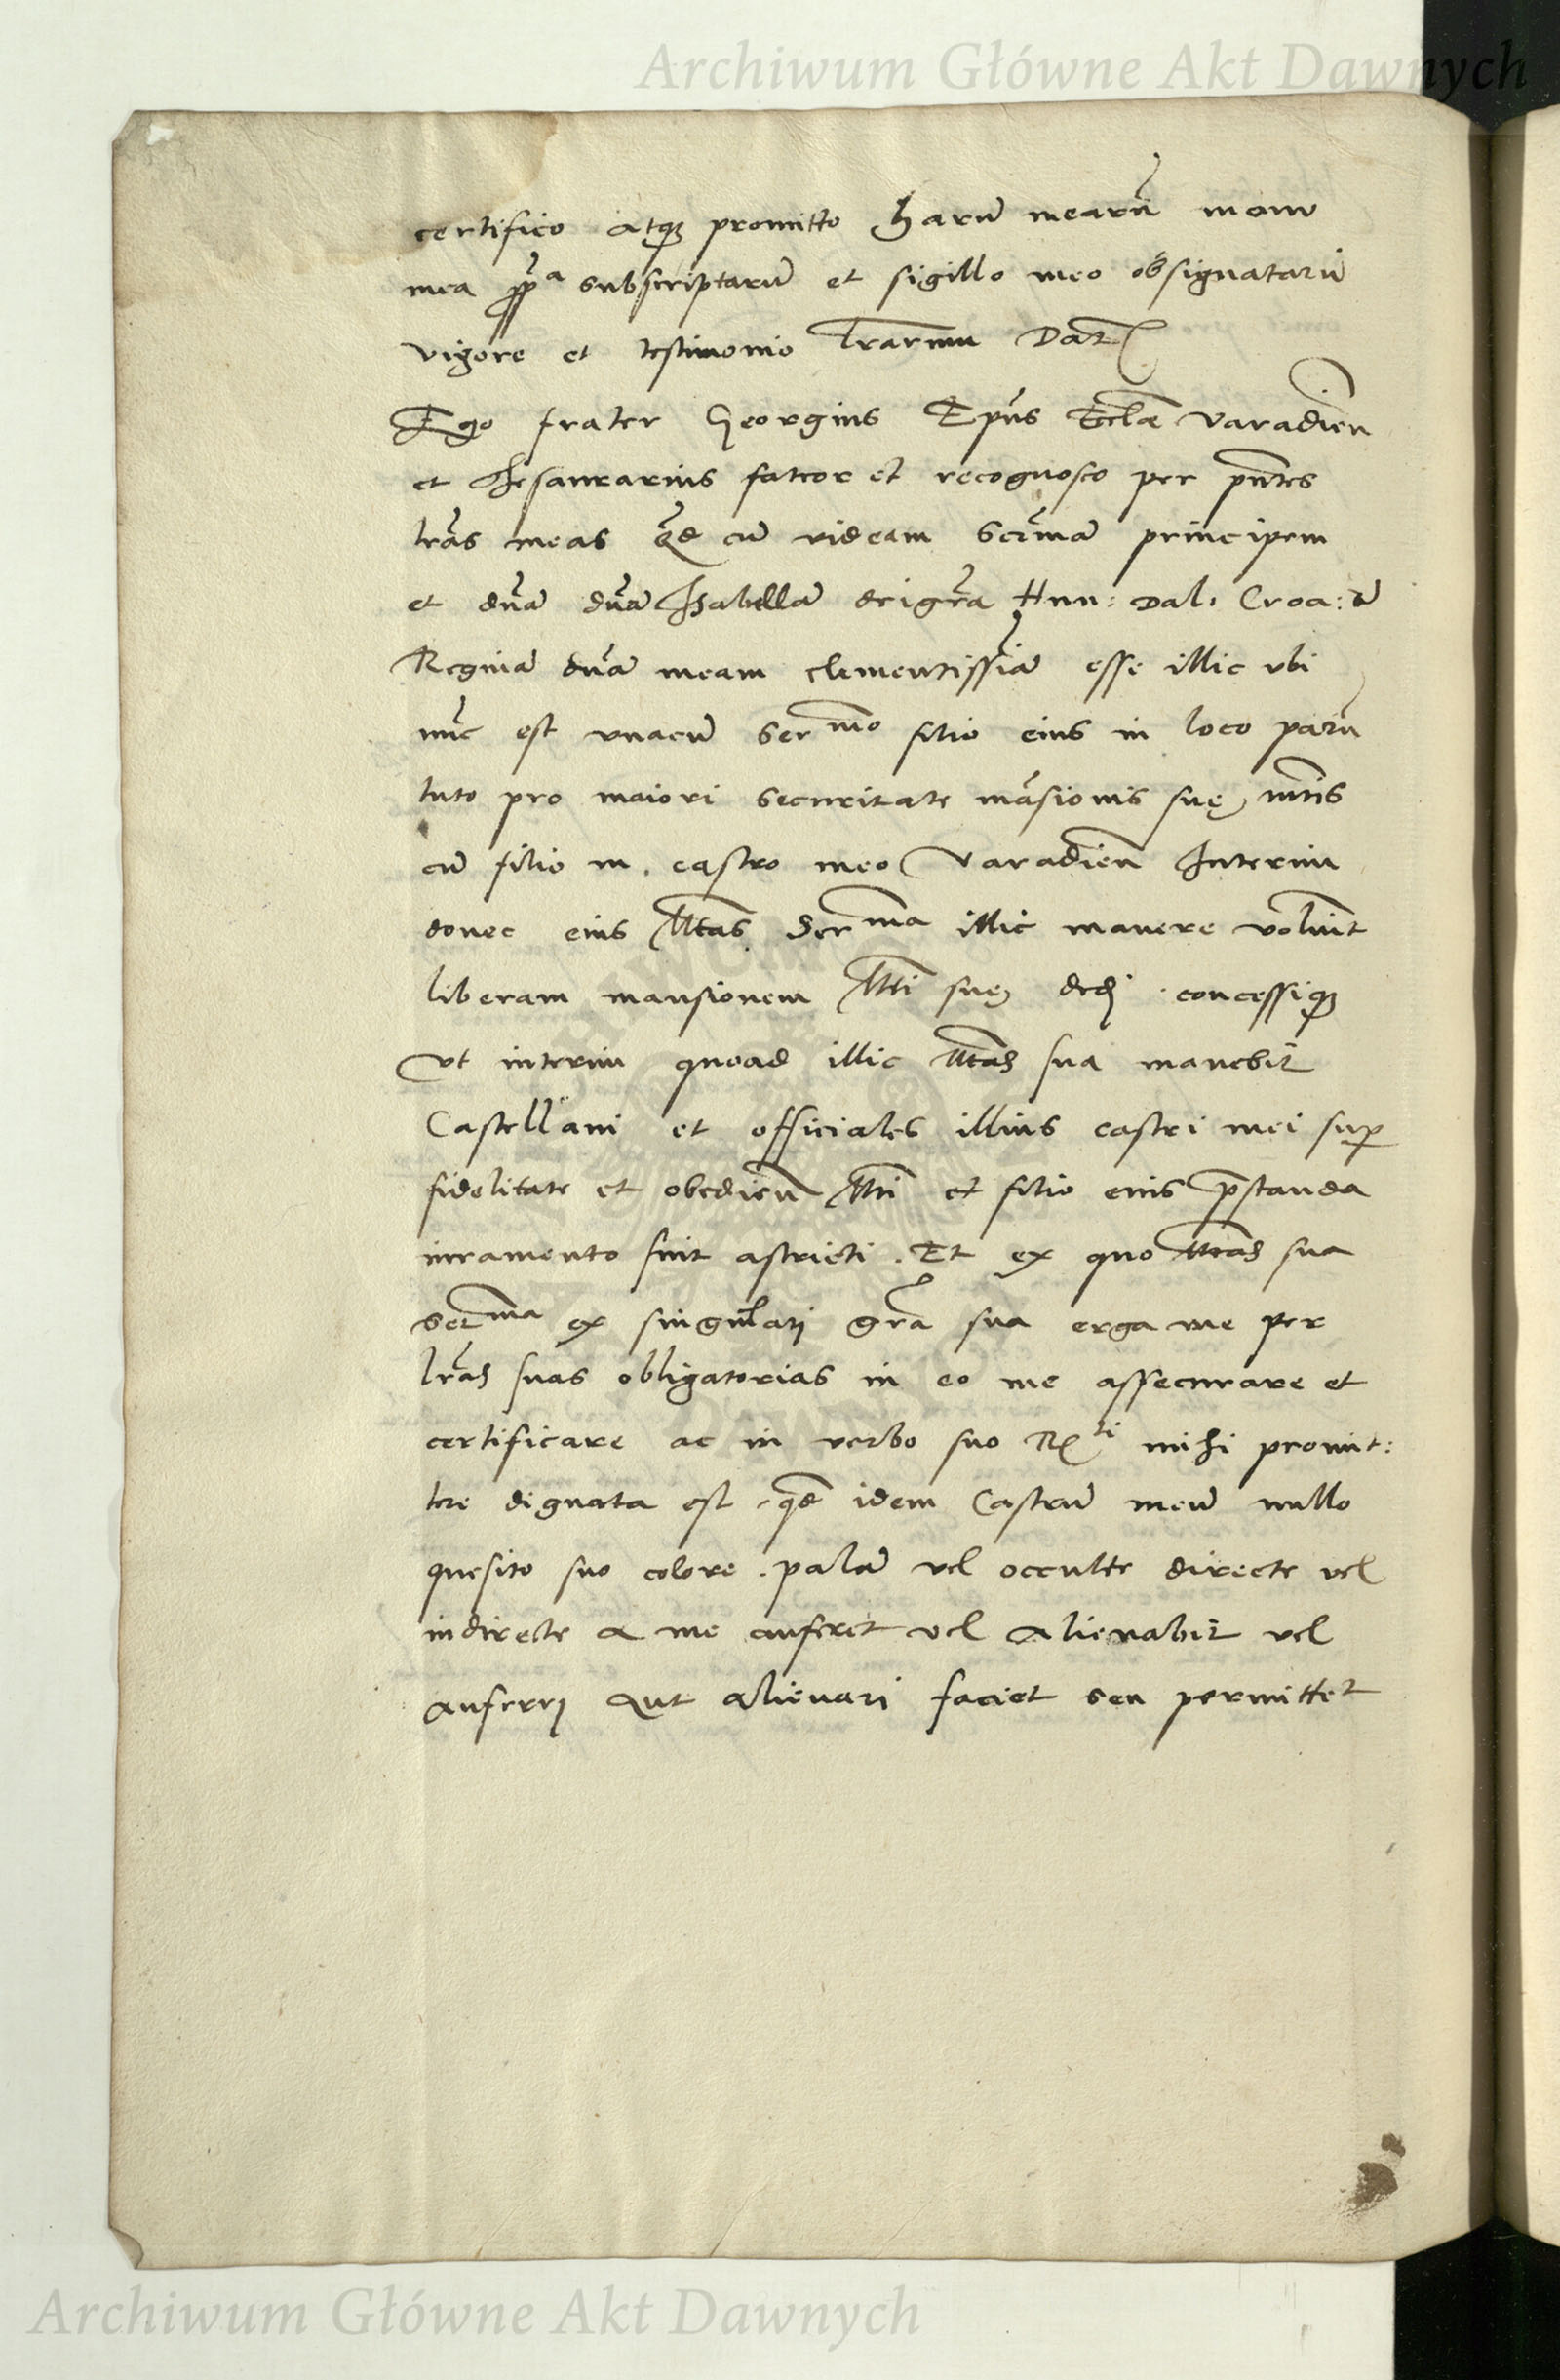 Archiwum Główne Akt Dawnych
certifico atq₃ promitto harū mearū manu
mea pp̃ᵃ subscriptarū et sigillo meo obsignatarū
vigore et testimonio l̃rarum Dat̃
Ego frater Georgius Ep̃us Eccl̃æ Varadieñ
et thesaurarius fateor et recognosco per pñtes
l̃ras meas q̃d cū videam Ser̃mā principem
et dñā dñā Isabellā dei gr̃a Hun: Dal: Croa: &
Reginā dñā meam clementissĩā esse illic vbi
nũc est vnacū Serᵐᵒ filio eius in loco parū
tuto pro maiori securitate mãsionis suę mt̃is
cū filio in castro meo Varadieñ Interim
donec eius Mt̃as Serᵐᵃ illic manere voluĩt
liberam mansionem Mt̃i suę dedj concessiq₃
vt interim quoad illic Mt̃as sua manebit
Castellani et officiales illius castri mei sup
fidelitate et obedieñ Mt̃i et filio eius p̃standa
iuramento sint astricti. Et ex quo Mt̃as sua
Serᵐᵃ ex singulari gr̃a sua erga me per
l̃ras suas obligatorias in eo me assecurare et
certificare ac in verbo suo Rᵗⁱ mihi promit:
tere dignata est, q̃d idem Castrū meū nullo
quesito suo colore. palā vel occulte directe vel
indirecte a me auferet vel alienabit vel
auferrj aut alienari faciet seu permittet
Archiwum Główne Akt Dawnych